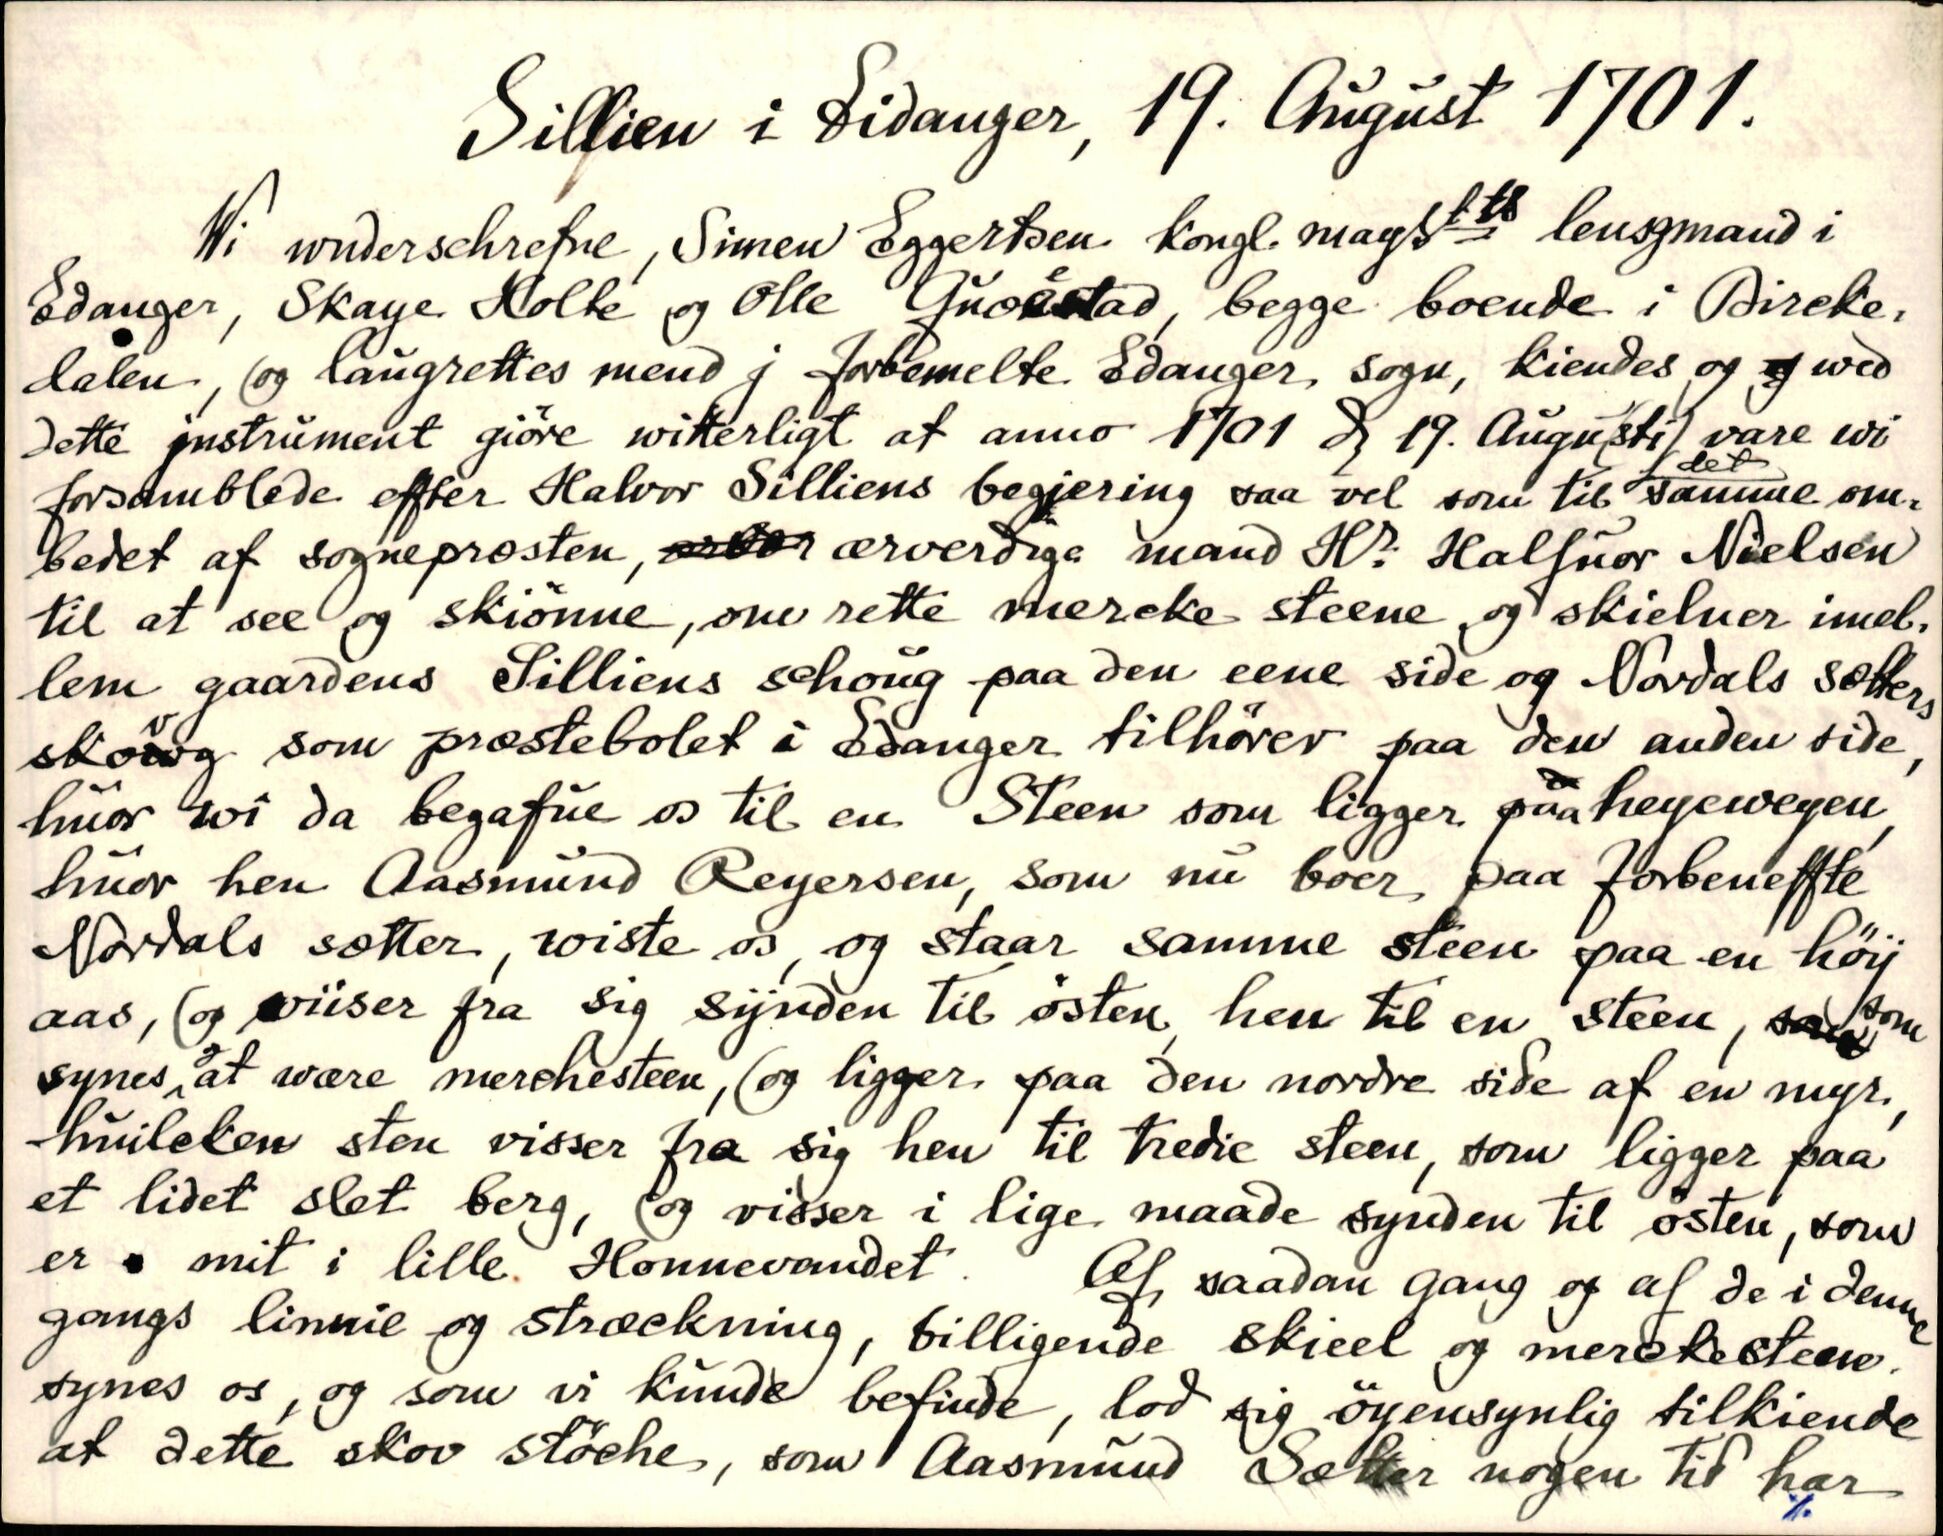 Sillien i Eidanger, 19. August 1701.
Wi wnderschrefne, Simen Eggertsen kongl. mays tts lensgmand i
Edanger, Skaye Holte og Olle Gnoestad, begge boende i Bircke-
dalen, og laugrettes mend j forbemelte Edanger sogn, kiendes og wed
dette jnstrument giöre witterligt at anno 1701 d 19. Augusti vare wi
forsamblede effter Halvor Silliens begjering saa vel som til det samme om-
bedet af sogneprosten, ærverdige mand Hr. Halfuor Nielsen
til at see og skiönne, om rette mercke steene og skielner imel-
lem gaardens Silliens schoug paa den eene side og Nordals sætters
skovg som præstebolet i Edanger tilhörer paa den anden side,
huor wi da begafue os til en Steen som ligger paa heyewegen,
huor hen Aasmund Reyersen, som nu boer paa forbeneffte
Nordals sætter, wiste os, og staar samme steen paa en höij
aas, og wiiser fra sig sijnden til östen, hen til en steen, som
synes at wære merchesteen, og ligger paa den nordre side af en myr,
huilcken sten visser fra sig hen til tredie steen, som ligger paa
et lidet slet berg, og visser i lige maade synden til östen, som
er mit i lille Honnevandet. Af saadan gang og af de i denne
gangs linnie og stræckning, billigende skieel og merckesteene.
synes os, og som vi kunde befinde, lod sig öyensynlig tilkiende
at dette skov stöche, som Aasmund Sætter nogen tid har
%